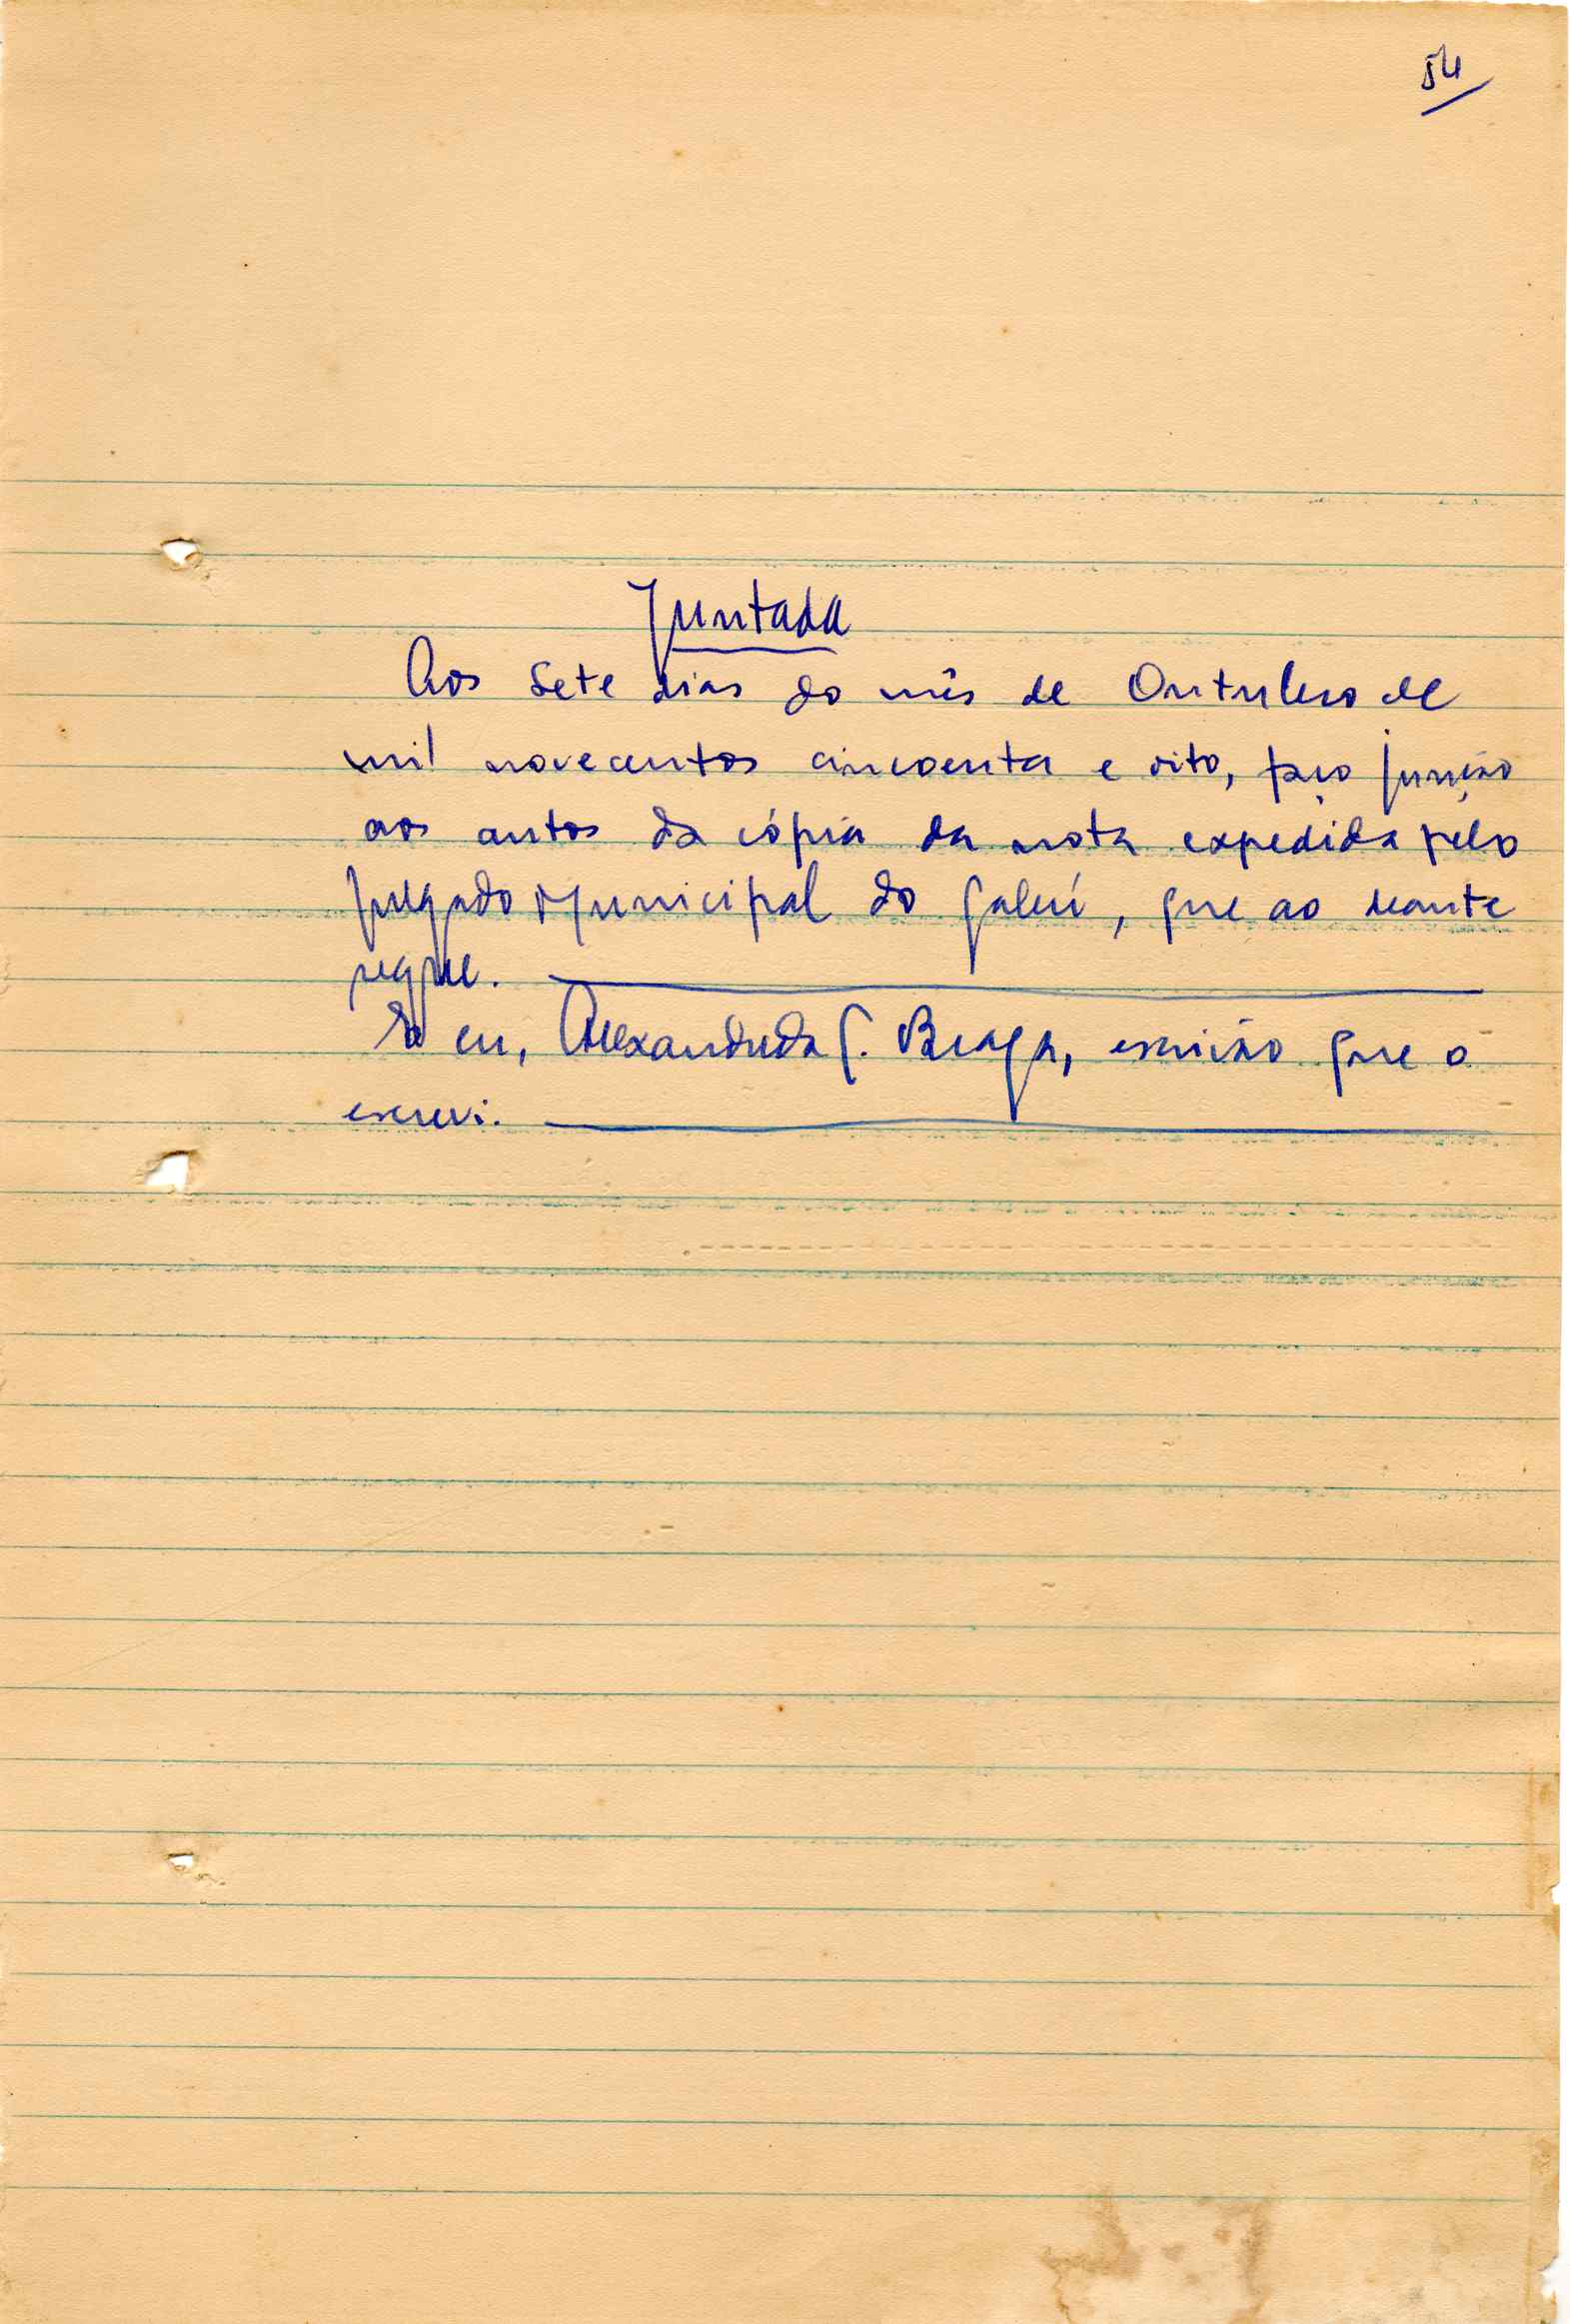 54
Juntada
Aos sete dias do mês de Outubro de
mil novecentos cincoenta e oito, faço junção
aos autos da cópia da nota expedida pelo
Julgado Municipal do Gabú, que ao deante
segue.
E eu, Alexandre da C. Braga, escrivão que o
escrevi.